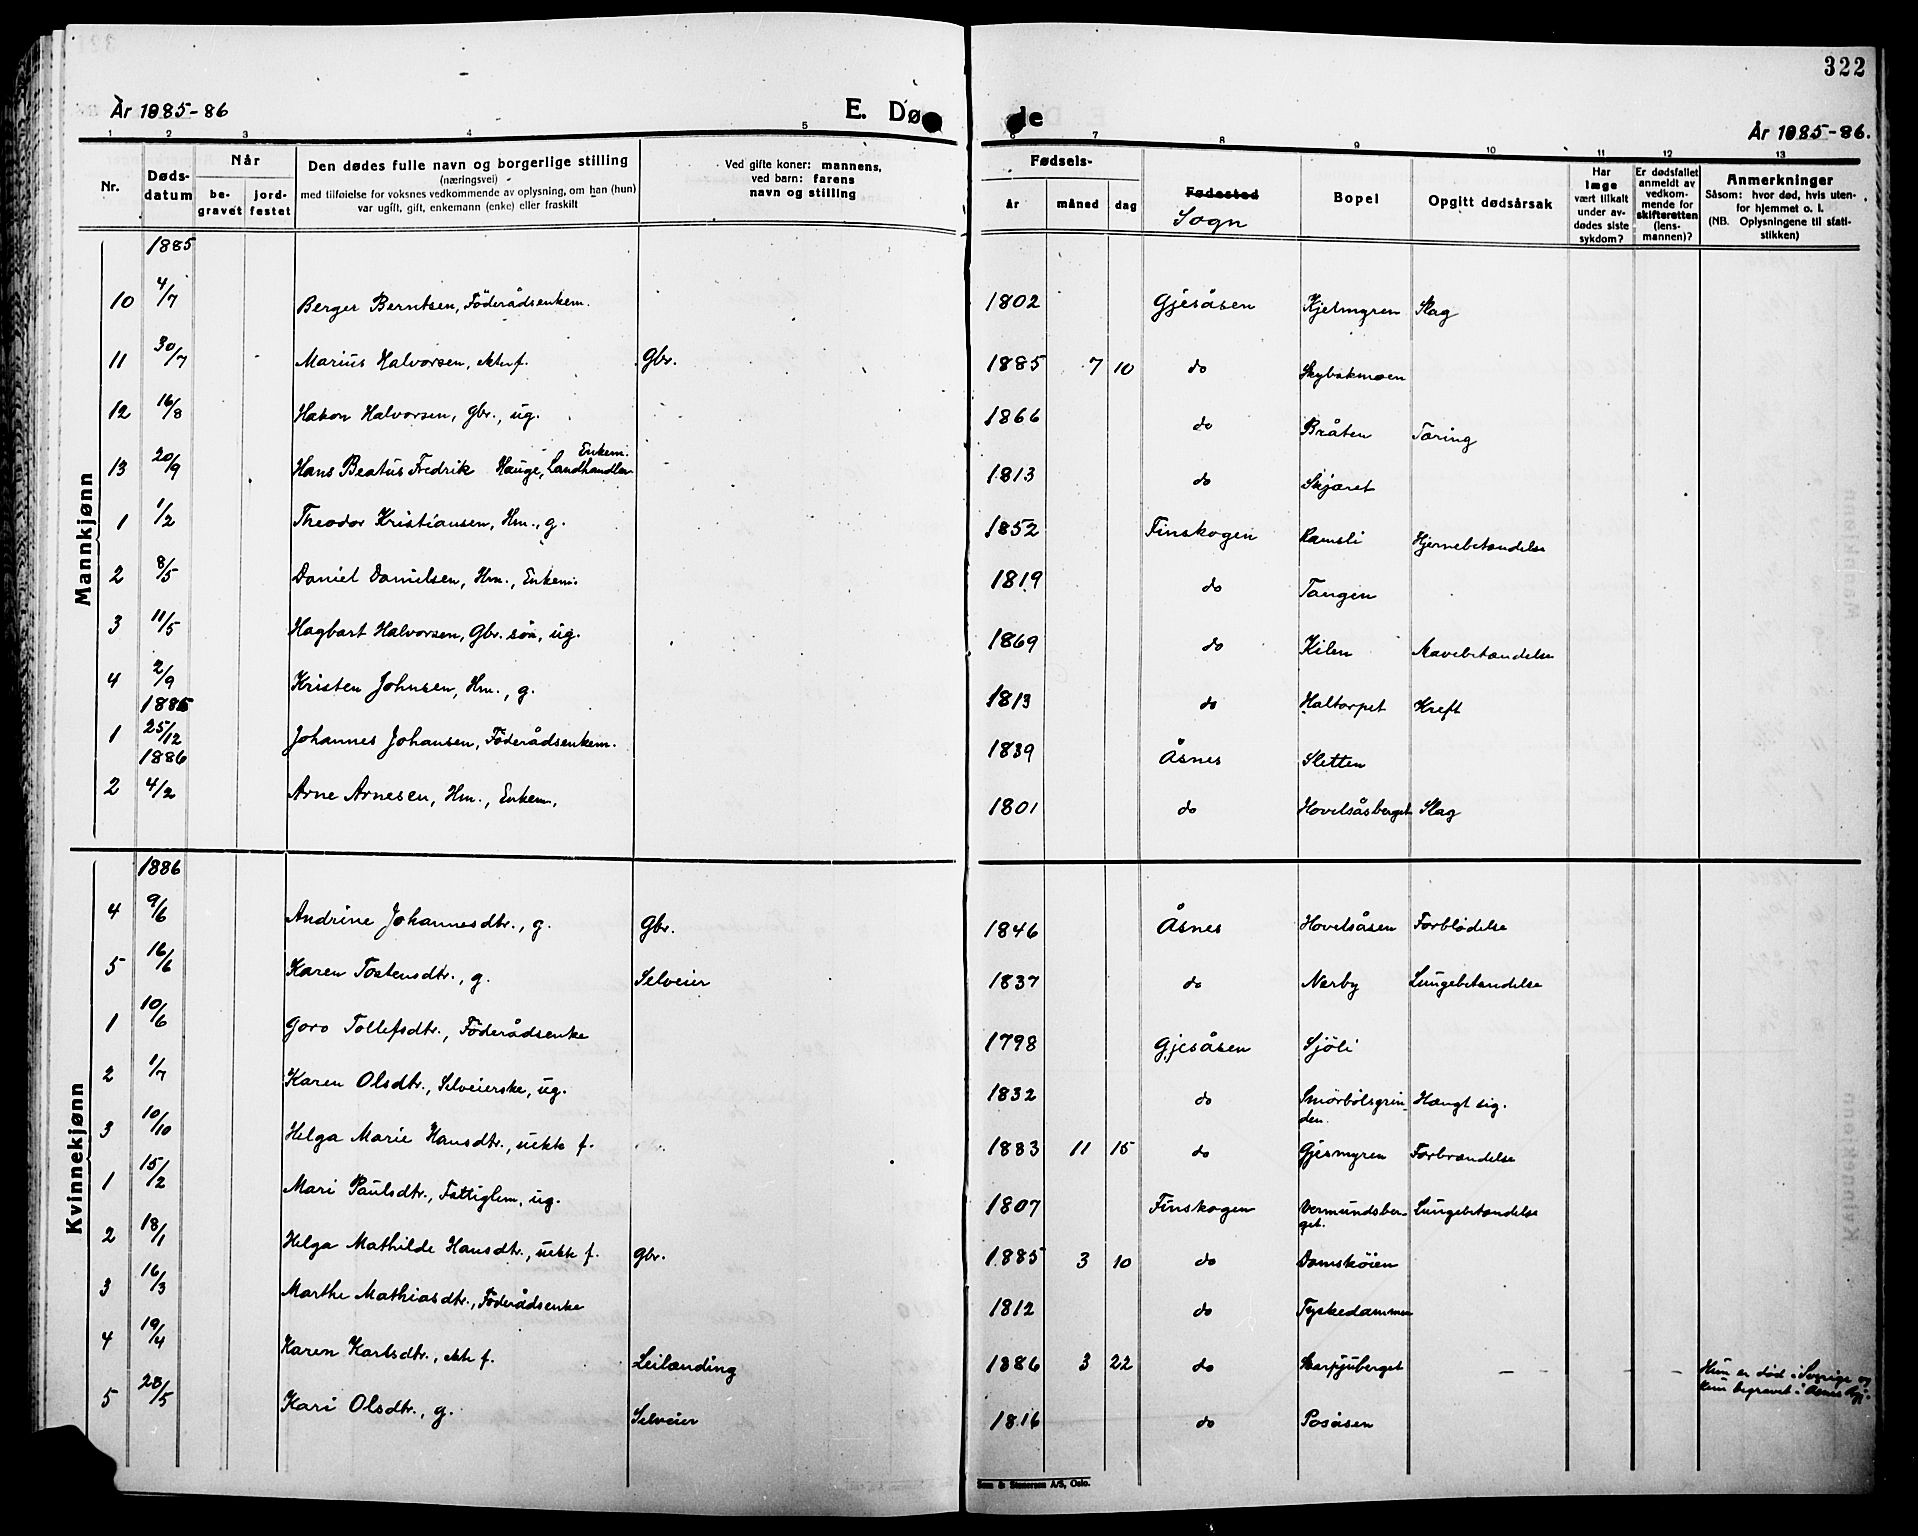 322
År 1885-86
E. Dø de
År 1885-86.
1 2 3 4 5 6 7 8 9 10 11 12 13
Nr.
Døds-
datum
Når
be-
gravet
jord-
festet
Den dødes fulle navn og borgerlige stilling
(næringsvei)
med tilføielse for voksnes vedkommende av oplysning, om han (hun)
var ugift, gift, enkemann (enke) eller fraskilt
Ved gifte koner: mannens,
ved barn: farens
navn og stilling
Fødsels-
år måned dag
Fødested
Sogn
Bopel
Opgitt dødsårsak
Har
læge
vært tilkalt
under av-
dødes siste
sykdom?
Er dødsfallet
anmeldt av
vedkom-
mende for
skifteretten
(lens-
mannen)?
Anmerkninger
Såsom: hvor død, hvis uten-
for hjemmet o. l.
(NB. Oplysningene til stati-
stikken)
Mannkjønn
1885
10 4/7 Berger Berntsen, Föderådsenkem. 1802 Gjesåsen Kjelmyren Slag
11 30/7 Marius Halvorsen, ekte f. Gbr. 1885 7 10 do Skybakmoen
12 16/8 Hakon Halvorsen, Gbr., ug. 1866 do Bråten Tæring
13 20/9 Hans Beatus Fredrik Hauge, Landhandler Enkem. 1813 do Skjæret
1 1/2 Theodor Kristiansen, Hm., g. 1852 Finskogen Ramsli Hjernebetændelse
2 8/5 Daniel Danielsen, Hm., Enkem. 1819 do Tangen
3 11/5 Hagbart Halvorsen, Gbr. sön, ug. 1869 do Kilen Mavebetændelse
4 2/9 Kristen Johnsen, Hm., g. 1813 do Haltorpet Kreft
1885
1 25/12 Johannes Johansen, Föderådsenkem. 1839 Åsnes Sletten
1886
2 4/2 Arne Arnesen, Hm., Enkem. 1801 do Hovelsåsberget Slag
Kvinnekjønn
1886
4 9/6 Andrine Johannesdtr., g. Gbr. 1846 Åsnes Hovelsåsen Forblödelse
5 16/6 Karen Tostensdtr., g. Selveier 1837 do Nerby Lungebetændelse
1 10/6 Goro Tollefsdtr., Föderådsenke 1798 Gjesåsen Sjöli
2 1/7 Karen Olsdtr., Selveierske, ug. 1832 do Smörbölsgrin- Hængt sig.
den.
3 10/10 Helga Marie Hansdtr., uekte f. 1883 11 15 do Gjesmyren Forbrændelse
1 15/2 Mari Paulsdtr., Fattiglem, ug. 1807 Finskogen Vermundsber- Lungebetændelse
get.
2 18/1 Helga Mathilde Hansdtr., uekte f. Gbr. 1885 3 10 do Damsköien
3 16/3 Marthe Mathiasdtr., Föderådsenke 1812 do Tyskedammen
4 19/4 Karen Karlsdtr., ekte f. Leilænding 1886 3 22 do Skarpjuberget - - Hun er död i Sverige og
kun begravet i Åsnes
5 28/5 Kari Olsdtr., g. Selveier 1816 do Posåsen
Sem & Stenersen A/S, Oslo.